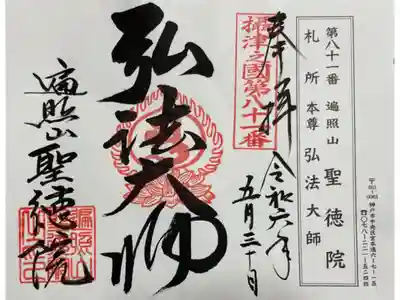 第八十一番 遍照山 聖徳院
札所本尊 弘法大師
奉拝
令和六年
五月三十日
摂津之國第八十一番
弘法大師
遍照山聖徳院